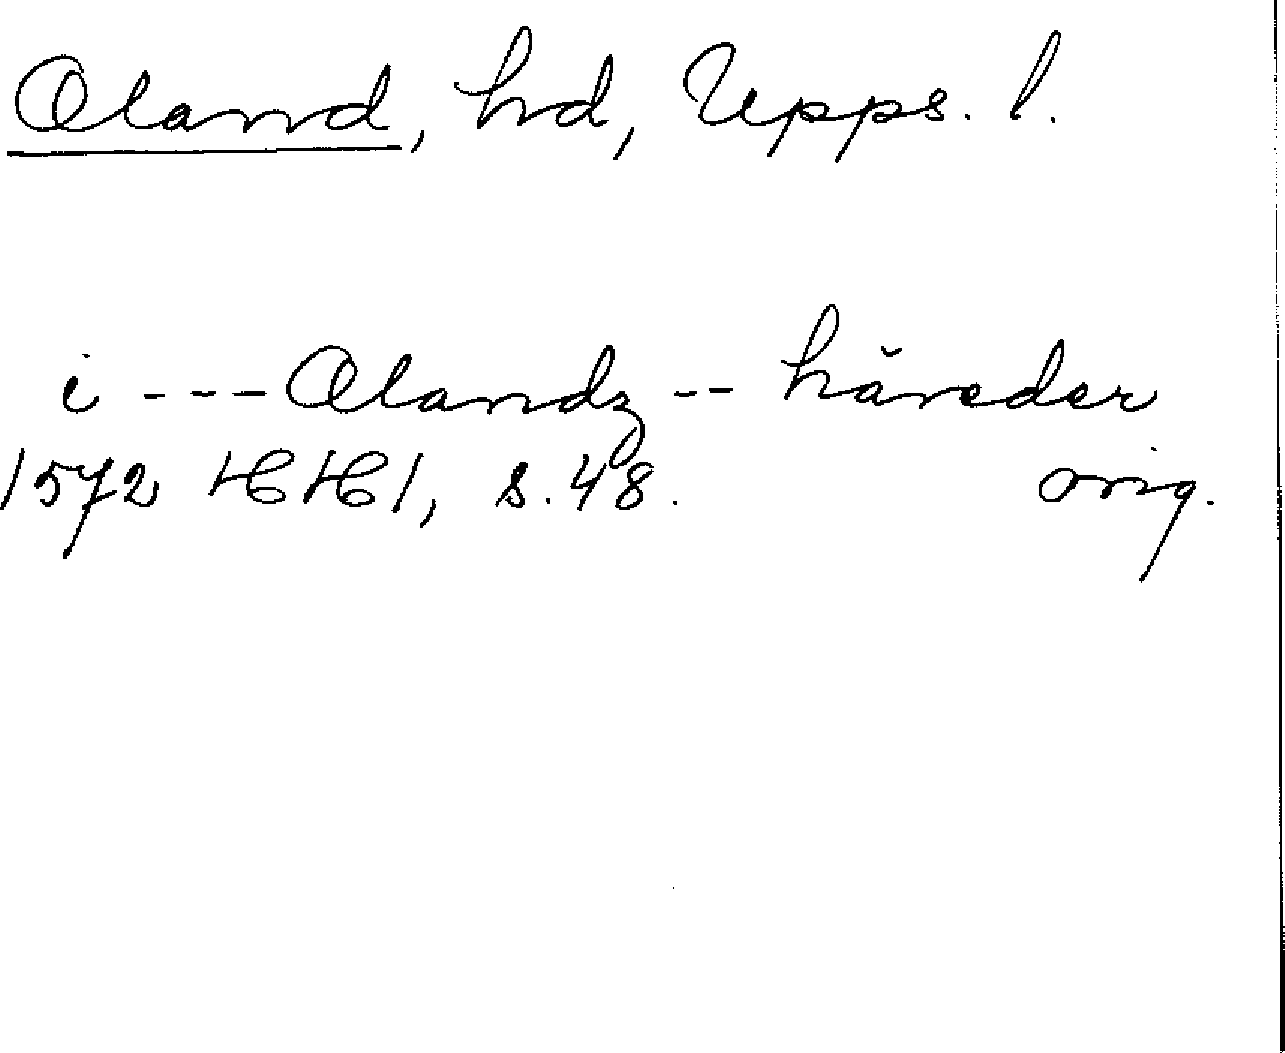 Oland, hd, Upps. l.
i --- Olandz -- häreder
1572 HH1, s. 48. orig.